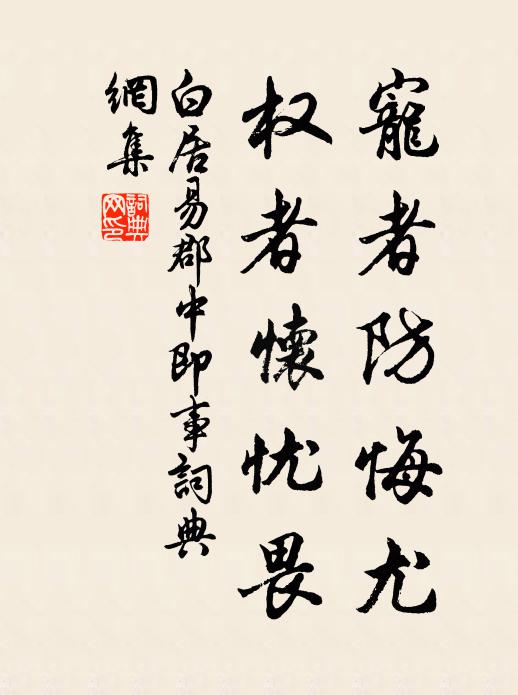 寵者防悔尤
权者懷忧畏
白居易郡中即事詞典
網集
詞典
网印